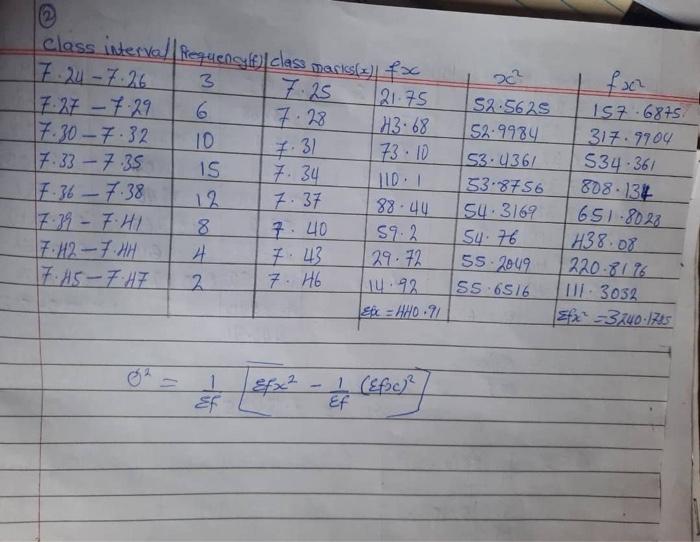 ②
Class interval | Frequency(f) | class marks(x) | fx | x² | fx²
7.24 – 7.26 3 7.25 21.75 52.5625 157.6875
7.27 – 7.29 6 7.28 43.68 52.9984 317.9904
7.30 – 7.32 10 7.31 73.10 53.4361 534.361
7.33 – 7.35 15 7.34 110.1 53.8756 808.134
7.36 – 7.38 12 7.37 88.44 54.3169 651.8028
7.39 – 7.41 8 7.40 59.2 54.76 438.08
7.42 – 7.44 4 7.43 29.72 55.2049 220.8196
7.45 – 7.47 2 7.46 14.92 55.6516 111.3032
Σfx = 440.91 Σfx² = 3240.1785
σ² = 1/Σf [Σfx² – 1/Σf (Σfx)²]